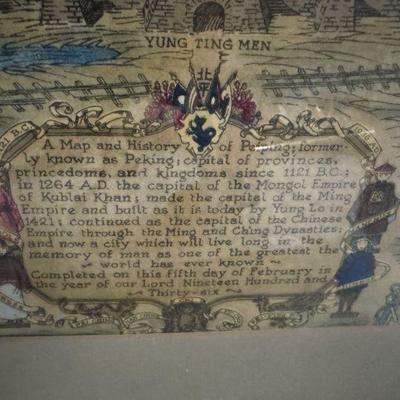 YUNG TING MEN
北
1121 B.C.
1936 A.D.
A Map and History of Peiping; former-
ly known as Peking; capital of provinces,
princedoms, and kingdoms since 1121 B.C.;
in 1264 A.D. the capital of the Mongol Empire
of Kublai Khan; made the capital of the Ming
Empire and built as it is today by Yung Lo in
1421; continued as the capital of the Chinese
Empire through the Ming and Ching Dynasties;
and now a city which will live long in the
memory of man as one of the greatest the
~ world has ever known ~
Completed on this fifth day of February in
the year of our Lord Nineteen Hundred and
~ Thirty-six ~